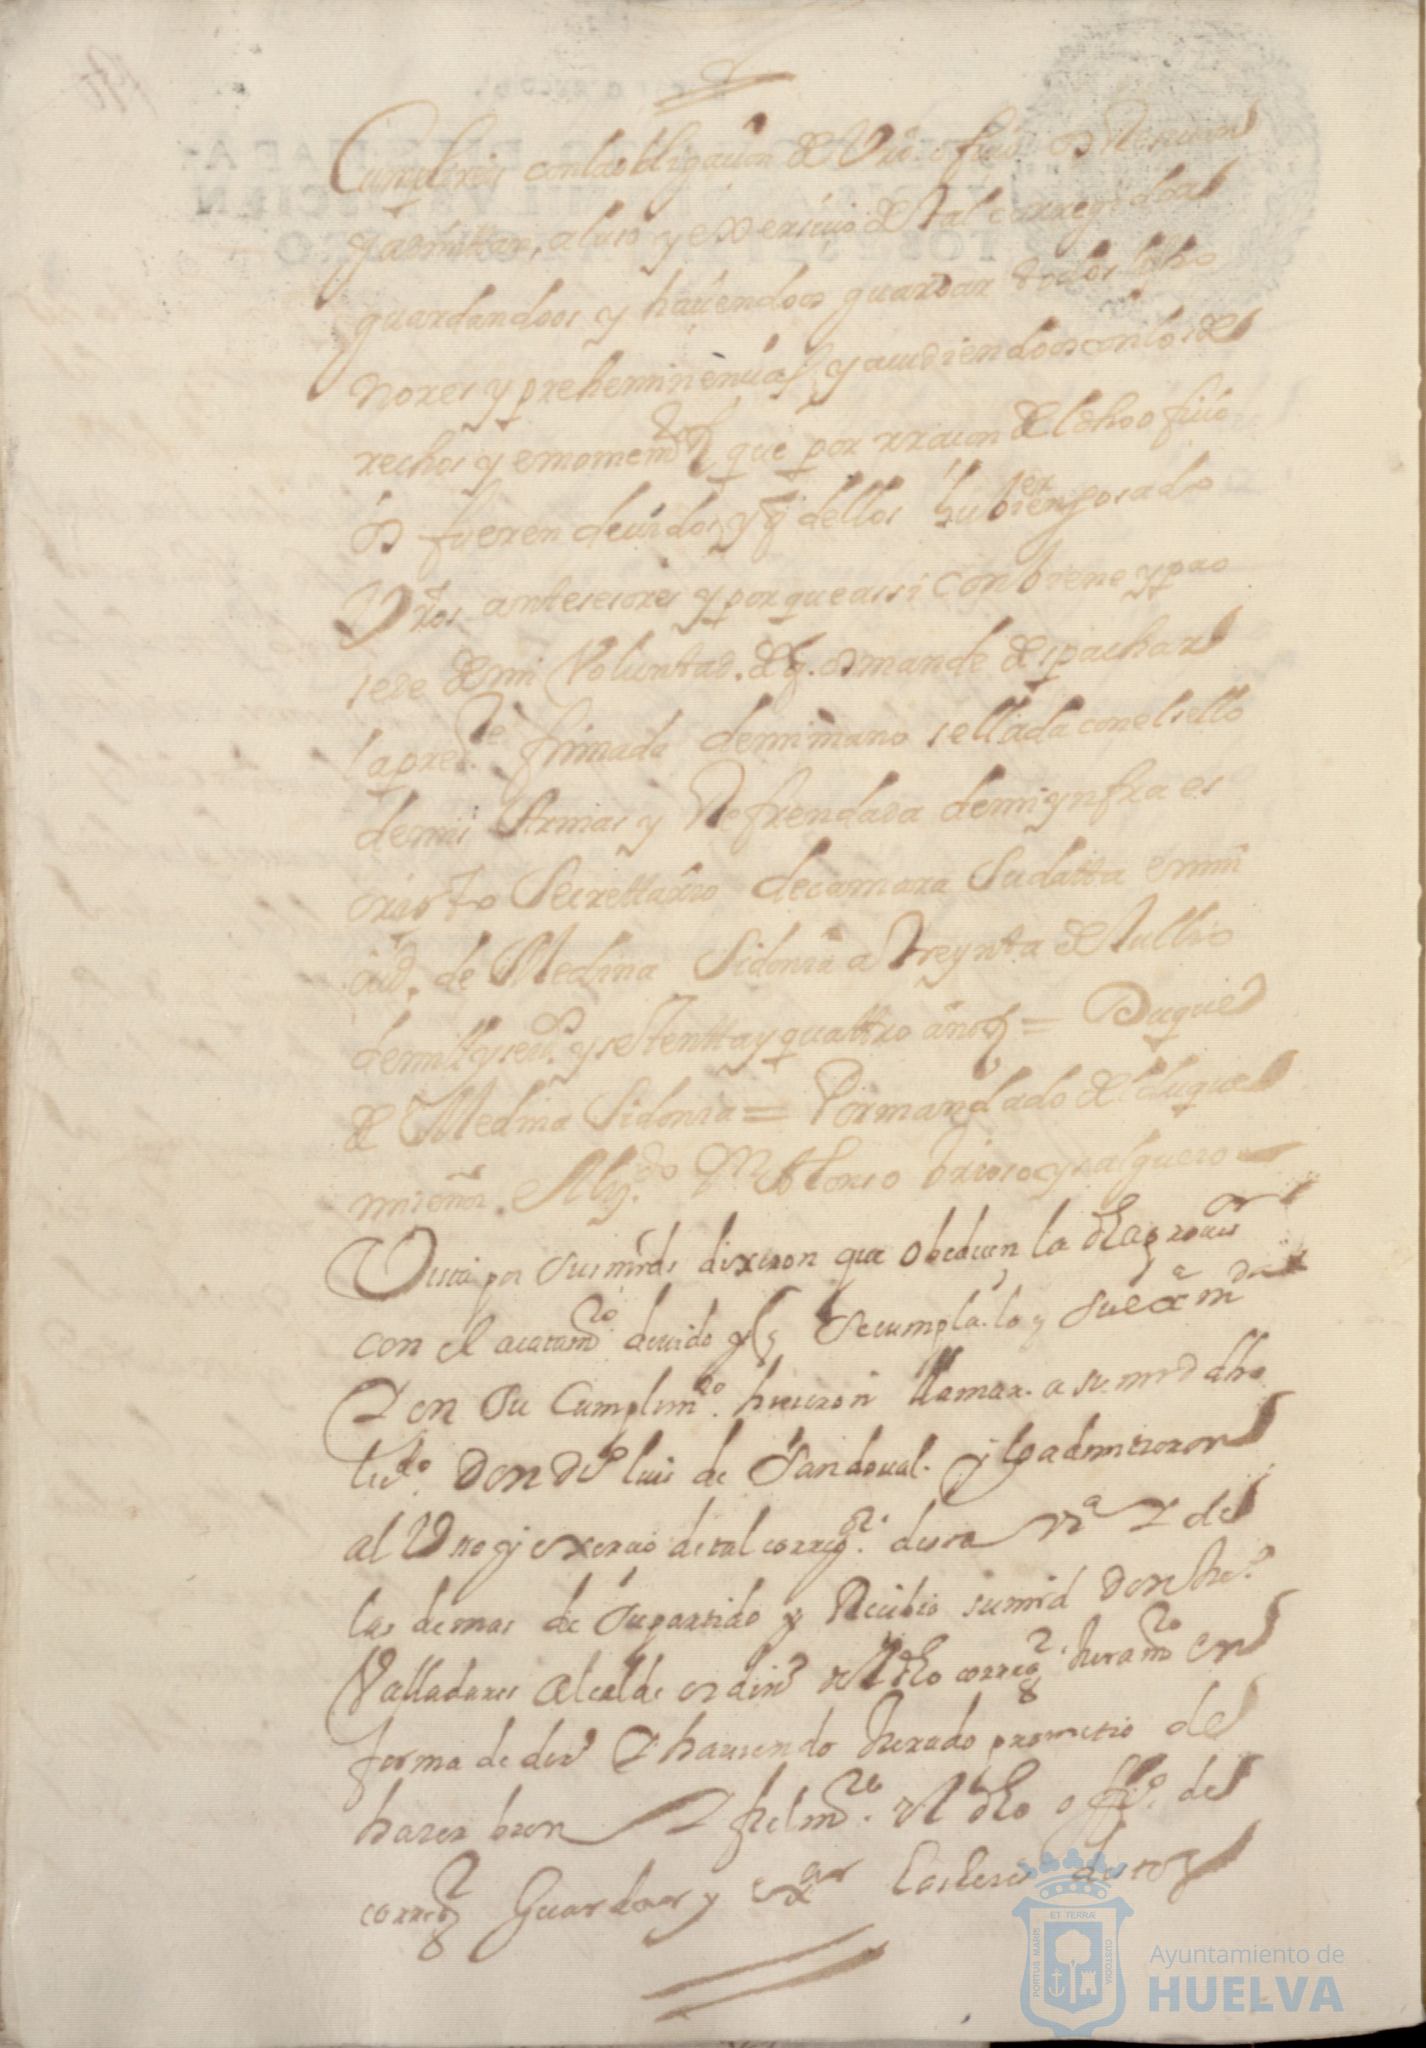 Cumplireis con la obligacion de Vro. ofiio os Reciuan
y admittan, al uso y exersicio de tal corregidor
guardandoos y haciendoos guardar todos los ho
nores y preheminencias, y acudiendoos con los de
rechos y emolumtos que por rracon del dho ofiio
os fueren deuidos y q dellos hubieren gosado
Vros antesesores y porque assi conbiene y pro
sede de mi Voluntad. de q. os mande despachar
la preste. firmada de mi mano sellada con el sello
de mis Armas y Refrendada de mi ynfraes
cripto Secrettario de camara Su datta en mi
ciud. de Medina Sidonia a treynta de Jullio
de mill y seisos. y settentta y quattro años = Duque
de Medina Sidonia = Por mandado del duque
mi señor. Dn Alonso brioso y salguero
Vista por Sus mrds dixeron que obedecen la dha prouis
con el acatamto deuido y q Se cumpla lo q Su exa mda
Y en Su Cumplimto. hicieron llamar. a su mrd dho
licdo Don Dio luis de Sandoual. y lo admitieron
al Uso y exercio de tal corregor. desta Va Y de
las demas de Su partido y Reciuio su mrd Don
Valladares Alcalde ordino del dho corregor Juramto en
forma de dro Y hauiendo Jurado prometio de
hazer bien Y fielmte. el dho offo. de
corregor Guardar y las leies destos
Ayuntamiento de
HUELVA
PORTUS MARIS
ET TERRAE
CUSTODIA